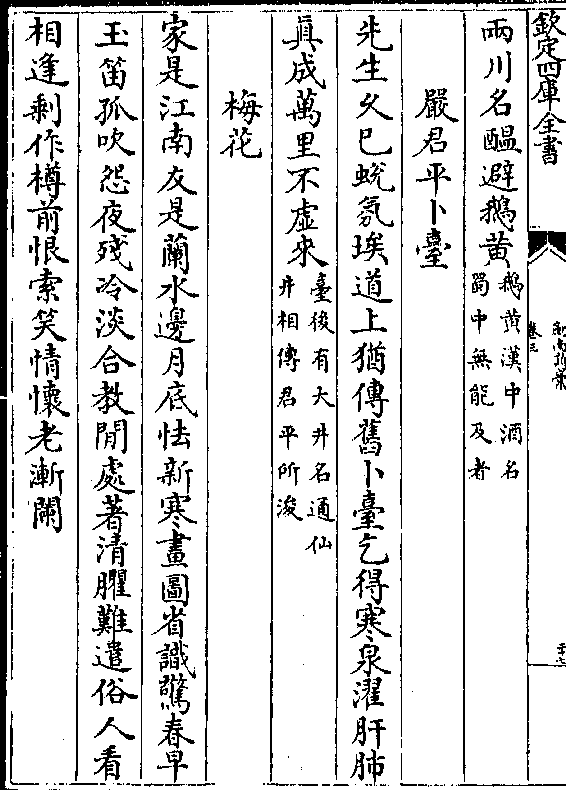 欽定四庫全書
劍南詩藁
卷三
兩川名醖避鵝黄鵝黄漢中酒名蜀中無能及者
嚴君平卜臺
先生久已蛻氛埃道上猶傳舊卜臺乞得寒泉濯肝肺
真成萬里不虚來臺後有大井名通仙井相傳君平所浚
梅花
家是江南友是蘭水邊月底怯新寒畫圖省識驚春早
玉笛孤吹怨夜殘冷淡合教閒處著清臞難遣俗人看
相逢剩作樽前恨索笑情懷老漸闌